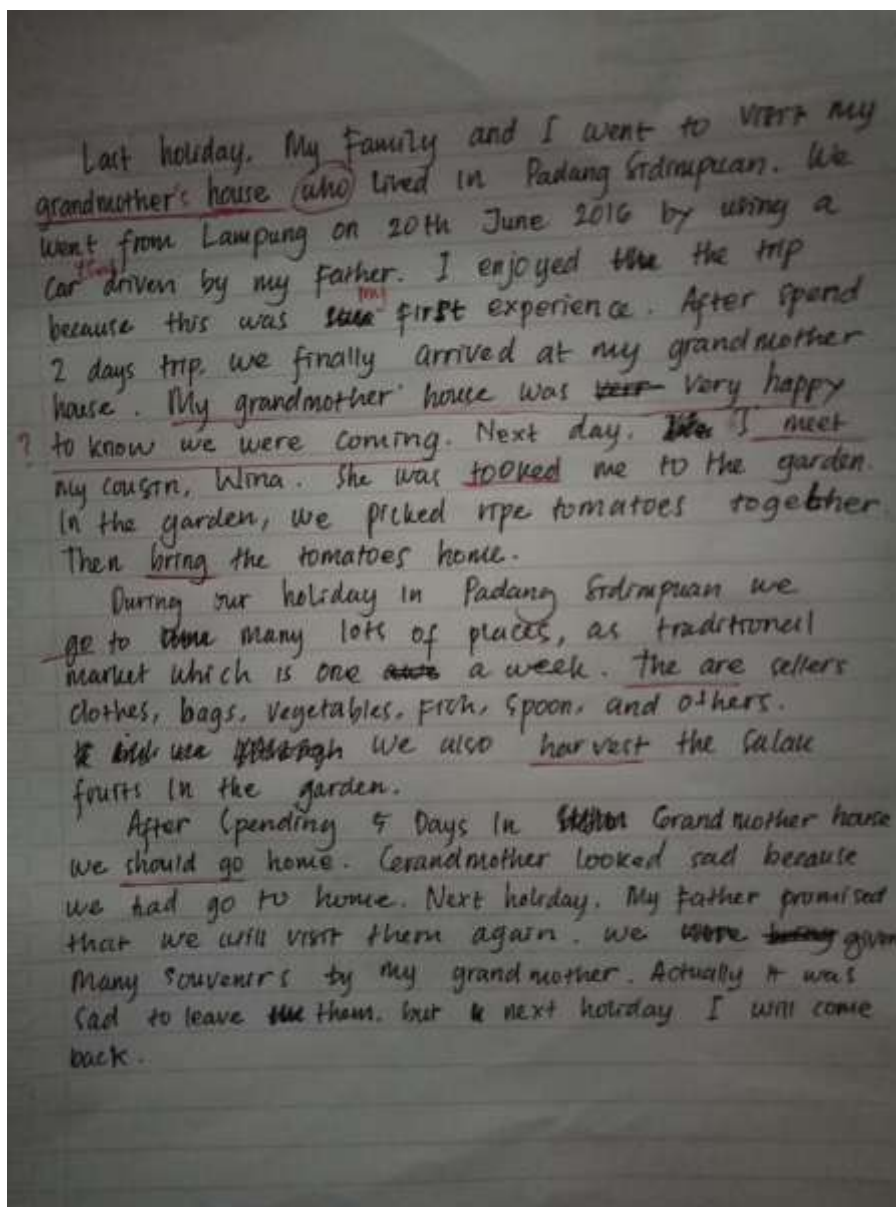 Last holiday. My Family and I went to visit my
grandmother's house who lived in Padang Sidimpuan. We
went from Lampung on 20th June 2016 by using a
car driven by my Father. I enjoyed the trip
because this was my first experience. After spend
2 days trip. we finally arrived at my grandmother
house. My grandmother' house was very happy
? to know we were coming. Next day. I meet
my cousin, Wina. She was tooked me to the garden.
In the garden, we picked ripe tomatoes together.
Then bring the tomatoes home.
During our holiday in Padang Sidimpuan we
go to many lots of places, as traditional
market which is one a week. The are sellers
clothes, bags, vegetables, Fish, Spoon, and others.
we also harvest the Salak
fruits in the garden.
After Spending 5 Days in Grandmother house
we should go home. Grandmother looked sad because
we had go to home. Next holiday. My Father promised
that we will visit them again. we given
Many Souvenirs by my grandmother. Actually it was
Sad to leave them. but next holiday I will come
back.